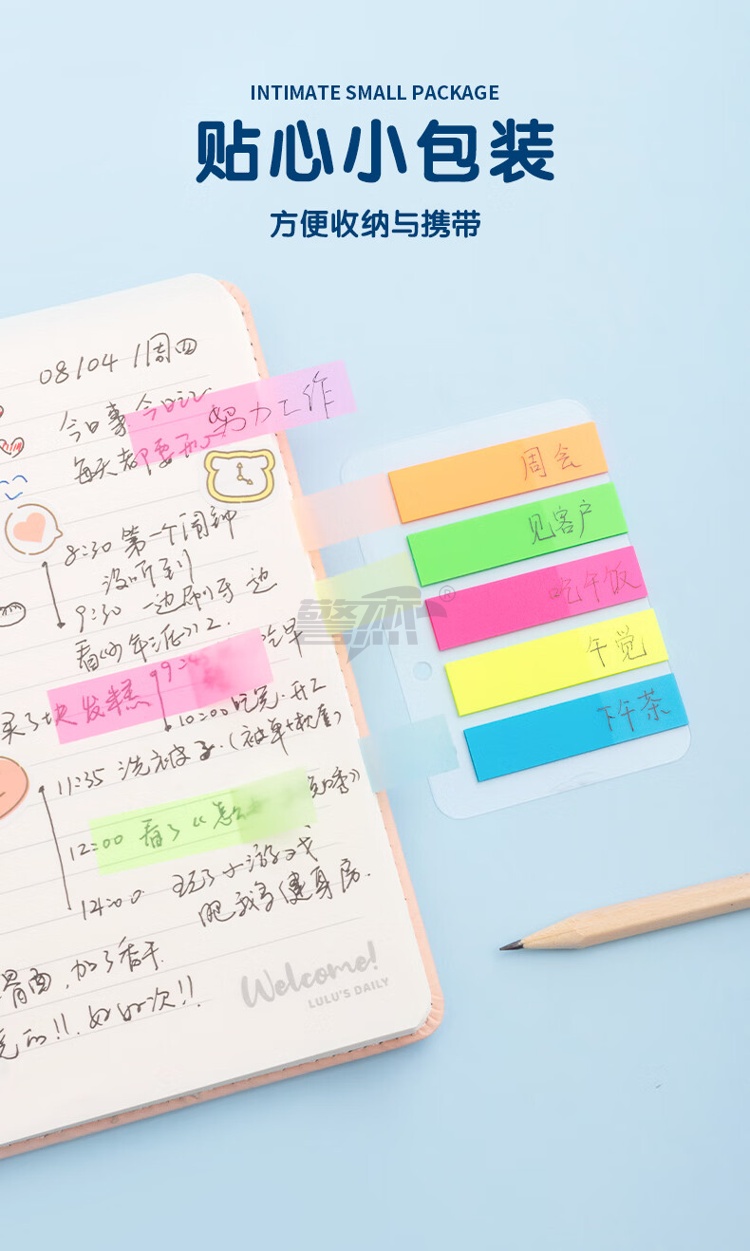 INTIMATE SMALL PACKAGE
贴心小包装
方便收纳与携带
08/04 /周四
今日事 今日记
每天都要
努力工作
8:30 第一个闹钟
没听到
9:30 一边刷牙 边
吃早
买了块发糕
10:00 吃完.开工
11:35 洗衣被子.(被单+枕套)
12:00 看了《怎么
14:00 玩了小游戏
肥我等健身房.
胃面,加了香干
好好次!!
Welcome!
LULU'S DAILY
周会
见客户
吃午饭
午觉
下午茶
警杰®